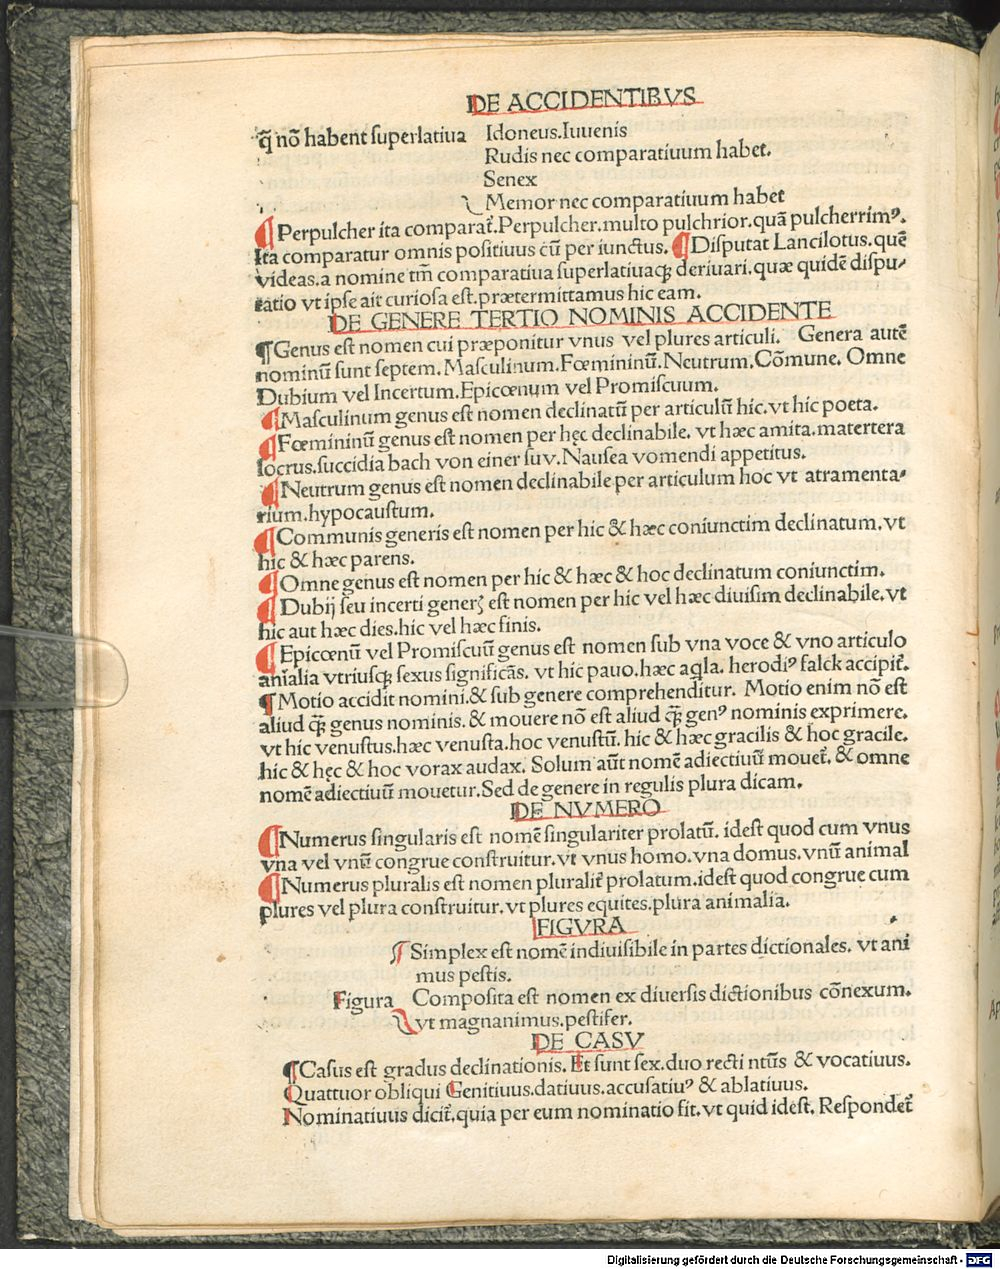 DE ACCIDENTIBVS
q̃ nõ habent superlatiua Idoneus.Iuuenis
Rudis nec comparatiuum habet.
Senex
Memor nec comparatiuum habet
¶ Perpulcher ita comparat᷑.Perpulcher.multo pulchrior.quã pulcherrimꝰ.
Ita comparatur omnis positiuus cũ per iunctus. ¶ Disputat Lancilotus.quẽ
videas.a nomine tm̃ comparatiua superlatiuaqꝫ deriuari.quæ quidẽ dispu-
tatio vt ipse ait curiosa est.prætermittamus hic eam.
DE GENERE TERTIO NOMINIS ACCIDENTE
¶ Genus est nomen cui præponitur vnus vel plures articuli. Genera autẽ
nominũ sunt septem. Masculinum. Fœmininũ. Neutrum. Cõmune. Omne
Dubium vel Incertum. Epicœnum vel Promiscuum.
¶ Masculinum genus est nomen declinatũ per articulũ hic.vt hic poeta.
¶ Fœmininũ genus est nomen per hęc declinabile. vt hæc amita.matertera
socrus.succidia bach von einer suv.Nausea vomendi appetitus.
¶ Neutrum genus est nomen declinabile per articulum hoc vt atramenta-
rium.hypocaustum.
¶ Communis generis est nomen per hic & hæc coniunctim declinatum.vt
hic & hæc parens.
¶ Omne genus est nomen per hic & hæc & hoc declinatum coniunctim.
¶ Dubij seu incerti generꝫ est nomen per hic vel hæc diuisim declinabile.vt
hic aut hæc dies.hic vel hæc finis.
¶ Epicœnũ vel Promiscuũ genus est nomen sub vna voce & vno articulo
anĩalia vtriusqꝫ sexus significãs. vt hic pauo.hæc aq̃la. herodiꝰ falck accipit᷑.
¶ Motio accidit nomini.& sub genere comprehenditur. Motio enim nõ est
aliud qꝫ̃ genus nominis. & mouere nõ est aliud qꝫ̃ genꝰ nominis exprimere.
vt hic venustus.hæc venusta.hoc venustũ. hic & hæc gracilis & hoc gracile.
hic & hęc & hoc vorax audax. Solum aũt nomẽ adiectiuũ mouet᷑. & omne
nomẽ adiectiuũ mouetur.Sed de genere in regulis plura dicam.
DE NVMERO
¶ Numerus singularis est nomẽ singulariter prolatũ. idest quod cum vnus
vna vel vnũ congrue construitur.vt vnus homo.vna domus.vnũ animal
¶ Numerus pluralis est nomen pluralit᷑ prolatum.idest quod congrue cum
plures vel plura construitur.vt plures equites.plura animalia.
FIGVRA
Simplex est nomẽ indiuisibile in partes dictionales. vt ani
mus pestis.
Figura Composita est nomen ex diuersis dictionibus cõnexum.
vt magnanimus.pestifer.
DE CASV
¶ Casus est gradus declinationis. Et sunt sex.duo recti ntũs & vocatiuus.
Quattuor obliqui Genitiuus.datiuus.accusatiuꝰ & ablatiuus.
Nominatiuus dicit᷑.quia per eum nominatio fit.vt quid idest. Respondet᷑
Digitalisierung gefördert durch die Deutsche Forschungsgemeinschaft - DFG